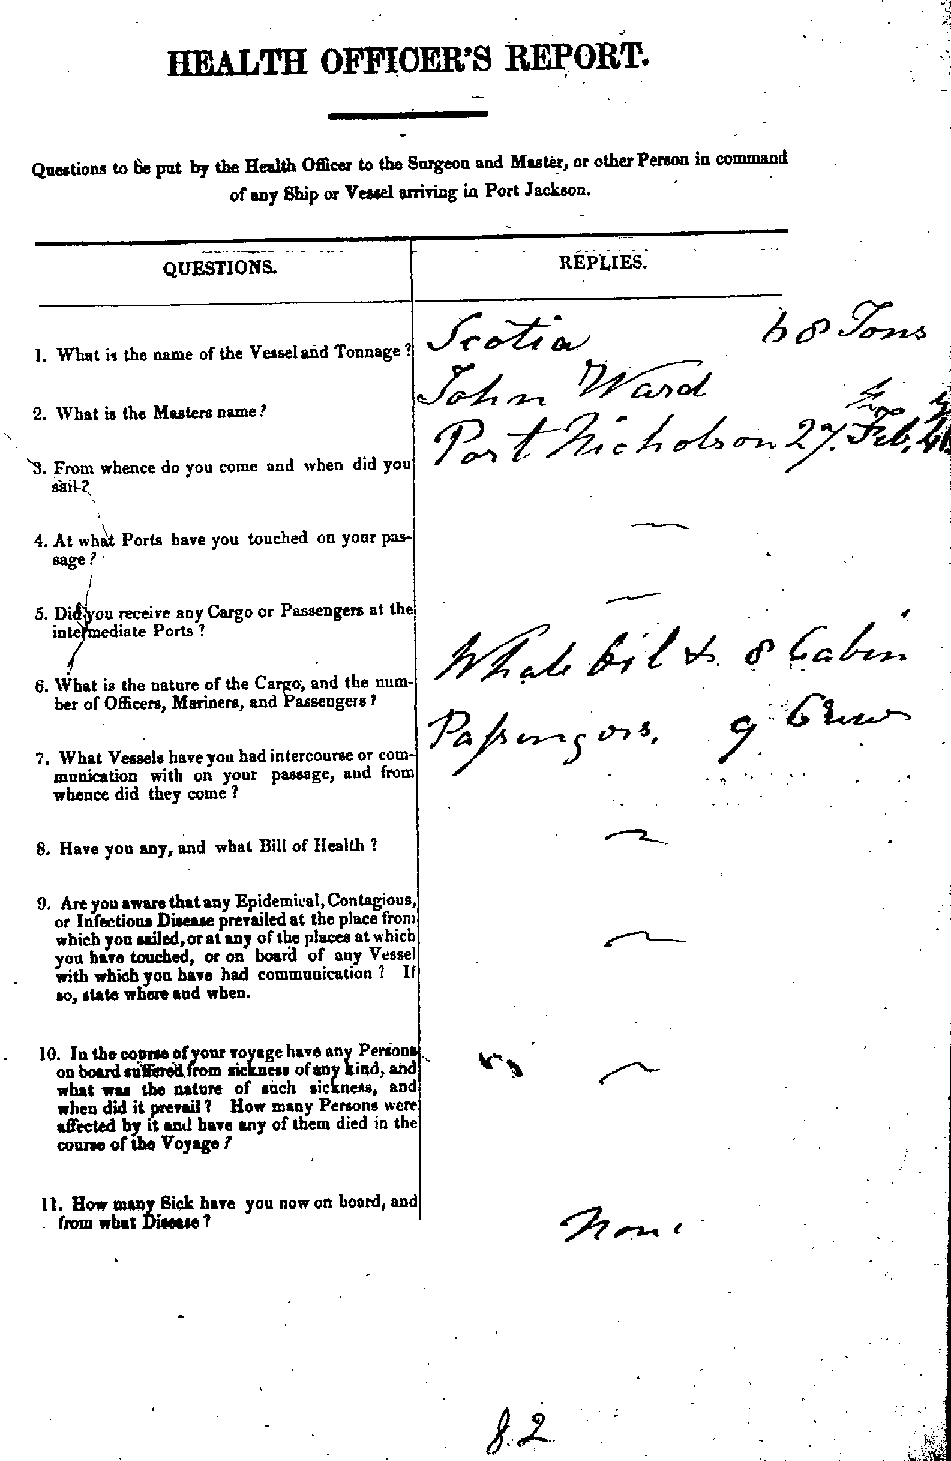 HEALTH OFFICER'S REPORT.
Questions to be put by the Health Officer to the Surgeon and Master, or other Person in command
of any Ship or Vessel arriving in Port Jackson.
QUESTIONS.
REPLIES.
1. What is the name of the Vessel and Tonnage?
Scotia 68 Tons
2. What is the Masters name?
John Ward
3. From whence do you come and when did you
sail?
Port Nicholson 27 Feb.
4. At what Ports have you touched on your pas-
sage?
—
5. Did you receive any Cargo or Passengers at the
intermediate Ports?
—
6. What is the nature of the Cargo, and the num-
ber of Officers, Mariners, and Passengers?
Whale Oil & 8 Cabin
Passengers. 9 Crew
7. What Vessels have you had intercourse or com-
munication with on your passage, and from
whence did they come?
8. Have you any, and what Bill of Health?
—
9. Are you aware that any Epidemical, Contagious,
or Infectious Disease prevailed at the place from
which you sailed, or at any of the places at which
you have touched, or on board of any Vessel
with which you have had communication? If
so, state where and when.
—
10. In the course of your voyage have any Persons
on board suffered from sickness of any kind, and
what was the nature of such sickness, and
when did it prevail? How many Persons were
affected by it and have any of them died in the
course of the Voyage?
—
11. How many Sick have you now on board, and
from what Disease?
None
82